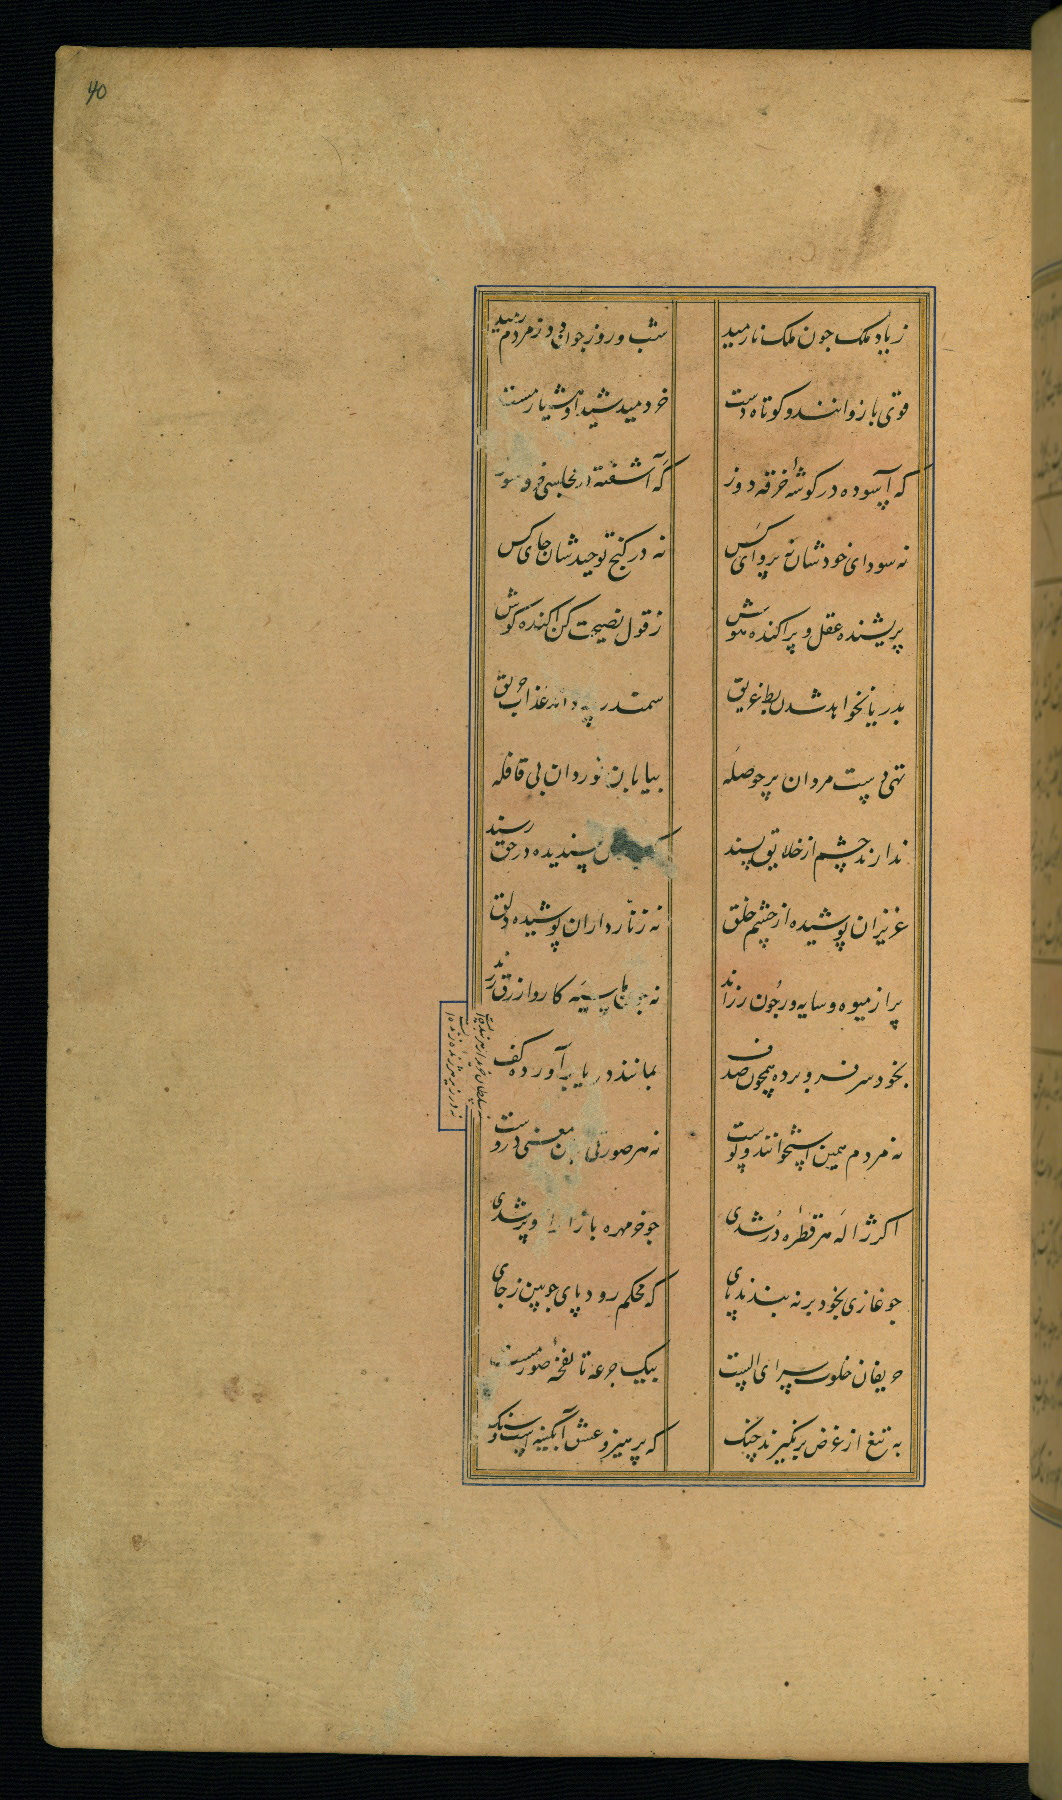 40
ز یاد ملک جون ملک نارمید شب و روز جون دد ز مردم رمید
قوی بازوانند و کوتاه دست خردمند شیدا و هشیار مست
که آسوده در کوشه خرقه دوز که آشفته در مجلسی خرقه سوز
نه سودای خودشان نه پروای کس نه در کنج توحیدشان جای کس
پریشنده عقل و پراکنده هوش ز قول نصیحت کن اکنده کوش
بدریا نخواهد شدن بط غریق سمندر چه داند عذاب حریق
تهی دست مردان پر حوصله بیابان نوردان بی قافله
ندارند چشم از خلایق پسند پسندیده در حق رسند
عزیزان پوشیده از چشم خلق نه زنارداران پوشیده دلق
پر از میوه و سایه ور جون رزاند نه جون ما سیه کار و ازرق رزند
بخود سر فرو برده همچون صدف بمانند دریا بر آورده کف
نه مردم همین استخوانند و پوست نه هر صورتی معنی دروست
نه سلطان خریدار هر بنده ایست
نه در زیر هر ژنده زنده ایست
اکر ژاله هر قطره در شدی جو خرمهره بازار ازو پر شدی
جو غازی بخود بر نه بندند پای که محکم رود پای جوبین ز جای
حریفان خلوت سرای الست بیک جرعه تا نفخه صور مست
به تیغ از غرض بر نکیرند چنک که پرهیز و عشق آبکینه است و سنک